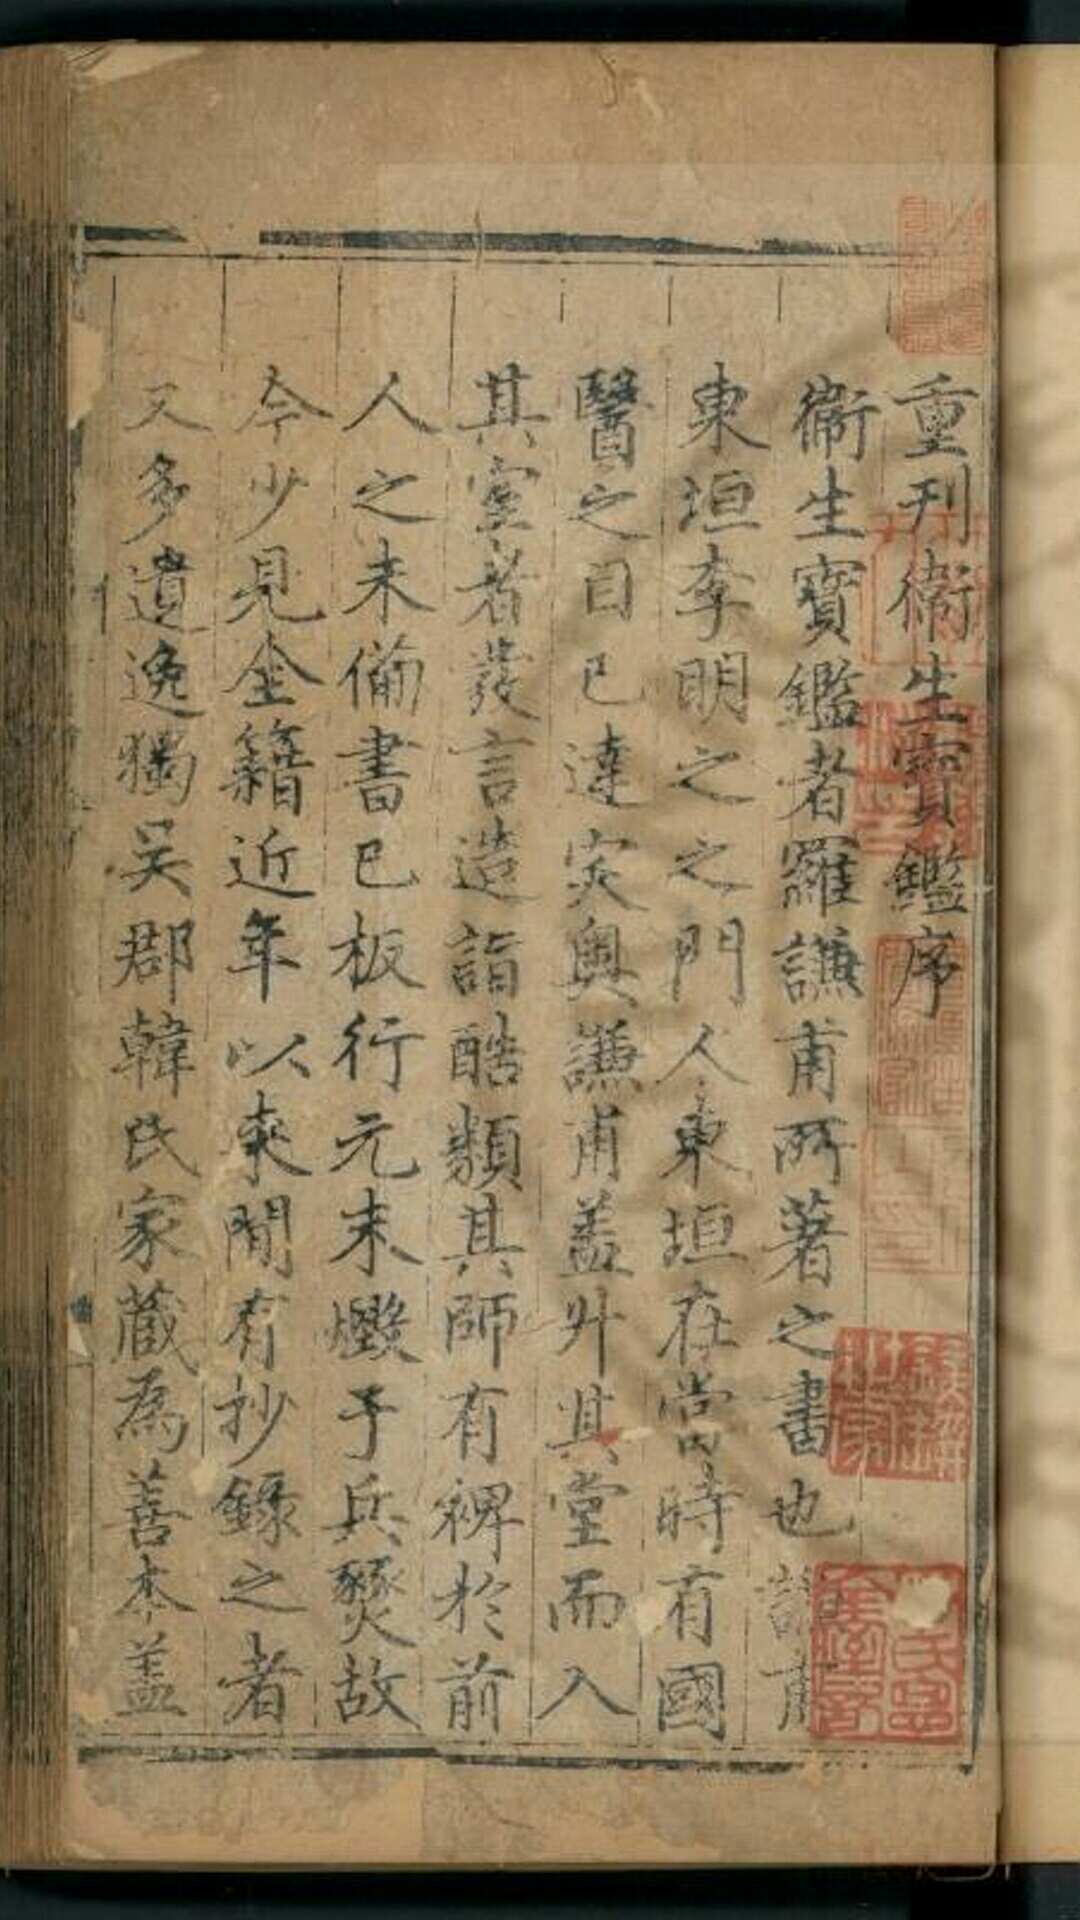 重刊衛生寳鑑序
衛生寳鑑者羅謙甫所著之書也謙甫
東垣李明之之門人東垣在當時有國
醫之目已達突奥謙甫盖升其堂而入
其室者發言造詣酷類其師有裨於前
人之未備書已板行元末燬于兵燹故
今少見全籍近年以來間有抄錄之者
又多遺逸獨吴郡韓氏家蔵為善本盖